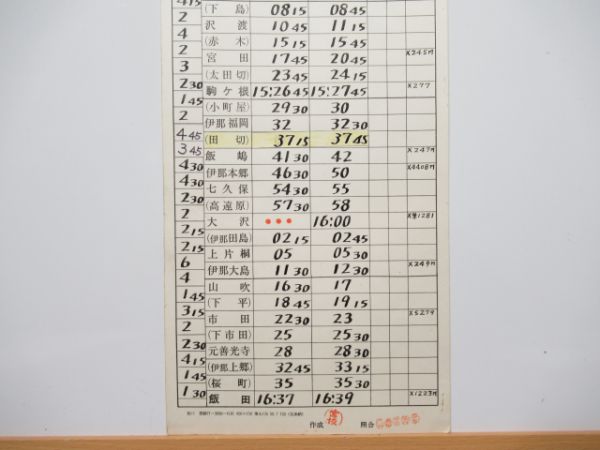 4 15
(下島) 08 15 08 45
2
沢渡 10 45 11 15
4
(赤木) 15 15 15 45
2
宮田 17 45 20 45 X245M
3
(太田切) 23 45 24 15
2 30
駒ケ根 15:26 45 15:27 45 X277
1 45
(小町屋) 29 30 30
2
伊那福岡 32 32 30
4 45
(田切) 37 15 37 45
3 45
飯嶋 41 30 42 X247M
4 30
伊那本郷 46 30 50 X4408M
4 30
七久保 54 30 55
2 30
(高遠原) 57 30 58
2
大沢 ●●● 16:00 X単1281
2 15
(伊那田島) 02 15 02 45
2 15
上片桐 05 05 30
6
伊那大島 11 30 12 30 X249M
4
山吹 16 30 17
1 45
(下平) 18 45 19 15
3 15
市田 22 30 23 X5279
2
(下市田) 25 25 30
2 30
元善光寺 28 28 30
4 15
(伊那上郷) 32 45 33 15
1 45
(桜町) 35 35 30
1 30
飯田 16:37 16:39 X1223M
作成 照合